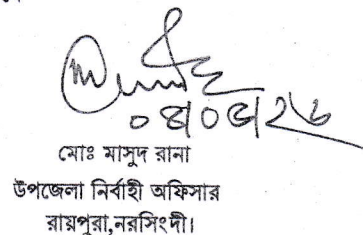 ০৪।০৫।২৬
মোঃ মাসুদ রানা
উপজেলা নির্বাহী অফিসার
রায়পুরা,নরসিংদী।